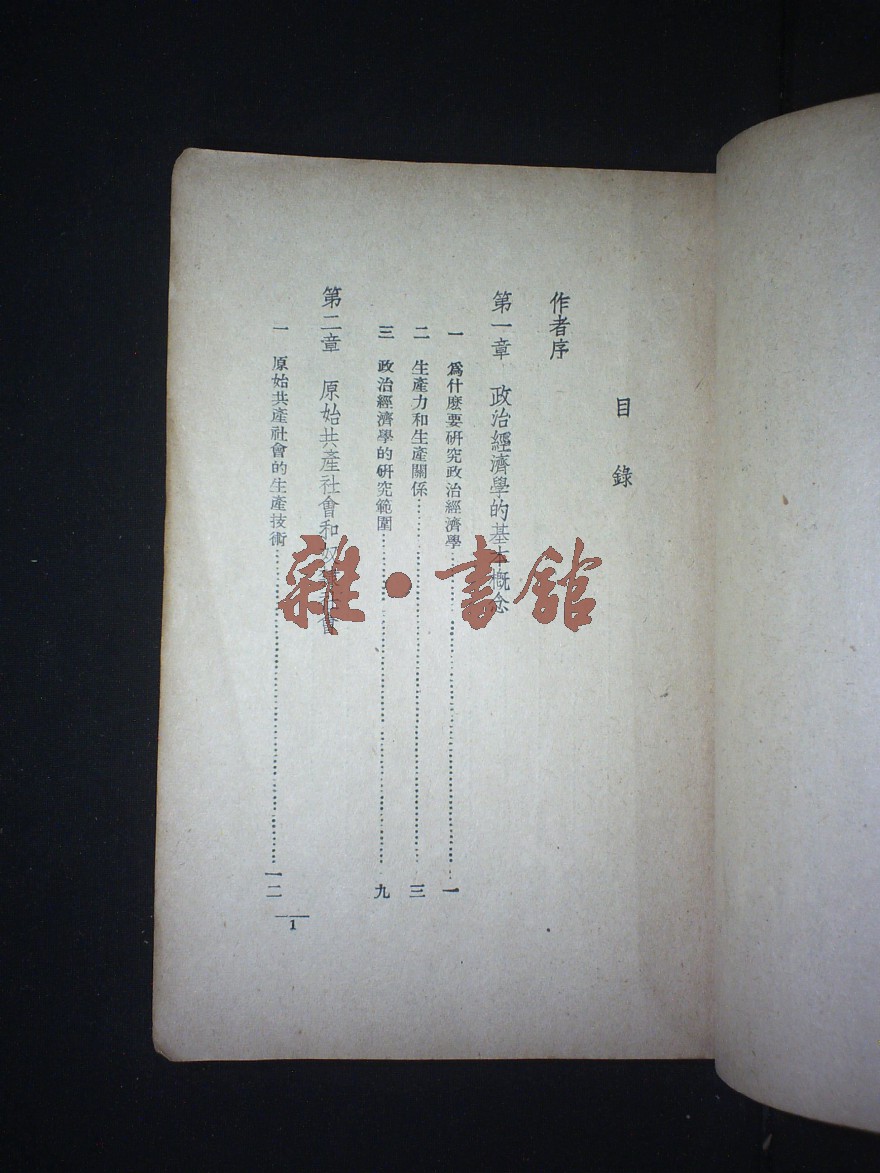 目錄
作者序
第一章 政治經濟學的基本概念
一 爲什麽要研究政治經濟學…………一
二 生產力和生產關係…………三
三 政治經濟學的研究範圍…………九
第二章 原始共產社會和奴隸社會
一 原始共產社會的生產技術…………一二
1
雜·書館